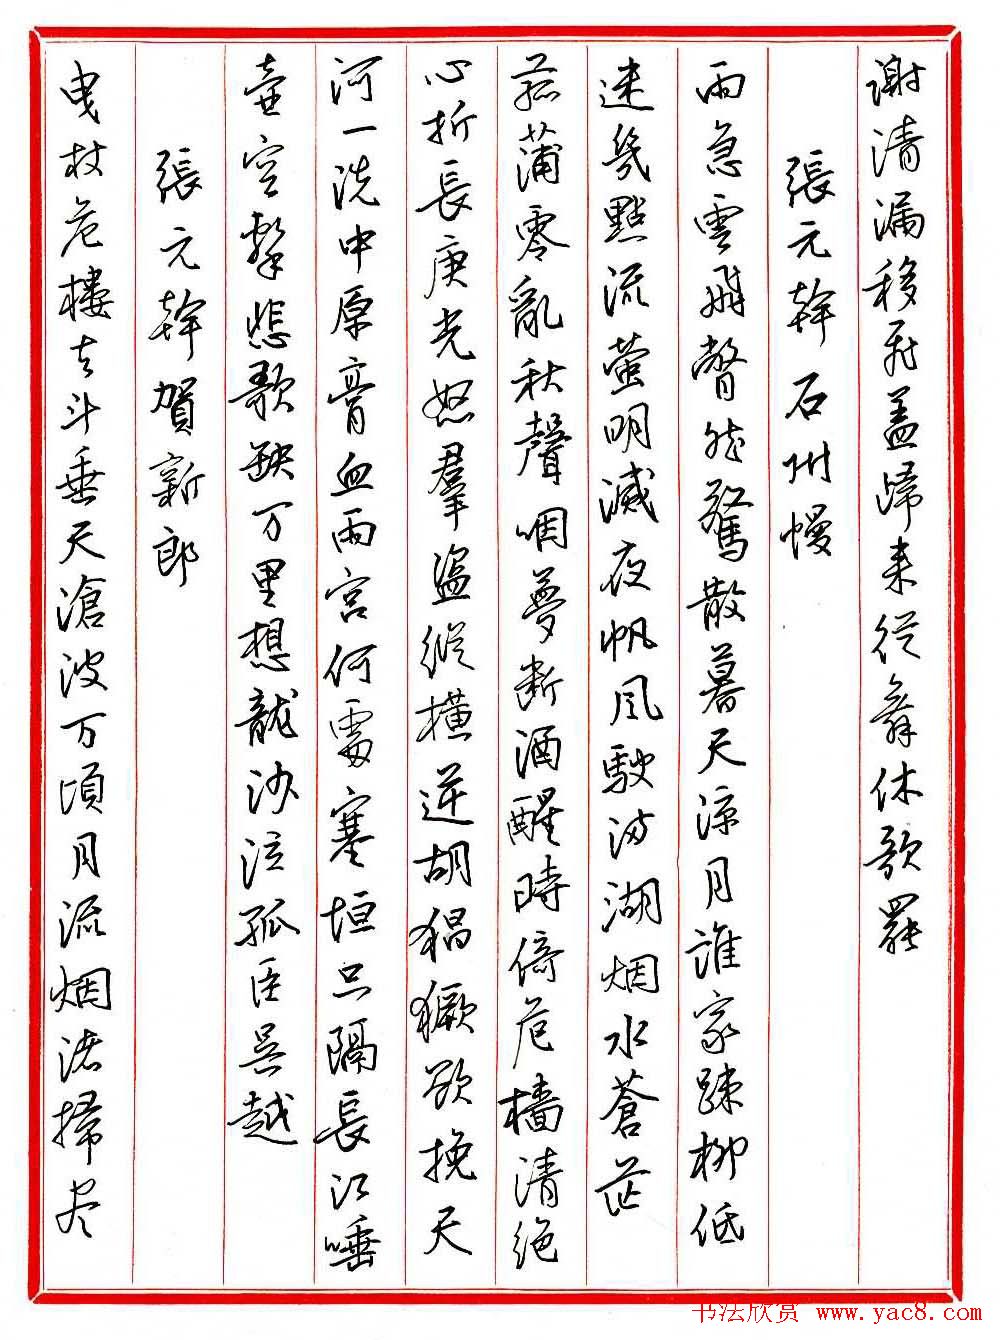 謝清漏移飛盖歸来從舞休歌罷
張元幹 石州慢
雨急雲飛瞥然驚散暮天涼月誰家疎柳低
迷幾點流螢明滅夜帆風駛滿湖烟水蒼茫
菰蒲零亂秋聲咽夢斷酒醒時倚危檣清絶
心折長庚光怒羣盜縱橫逆胡猖獗欲挽天
河一洗中原膏血兩宮何處塞垣只隔長江唾
壺空擊悲歌缺万里想龍沙泣孤臣吳越
張元幹賀新郎
曳杖危樓去斗垂天滄波万頃月流烟渚掃尽
书法欣赏 www.yac8.com